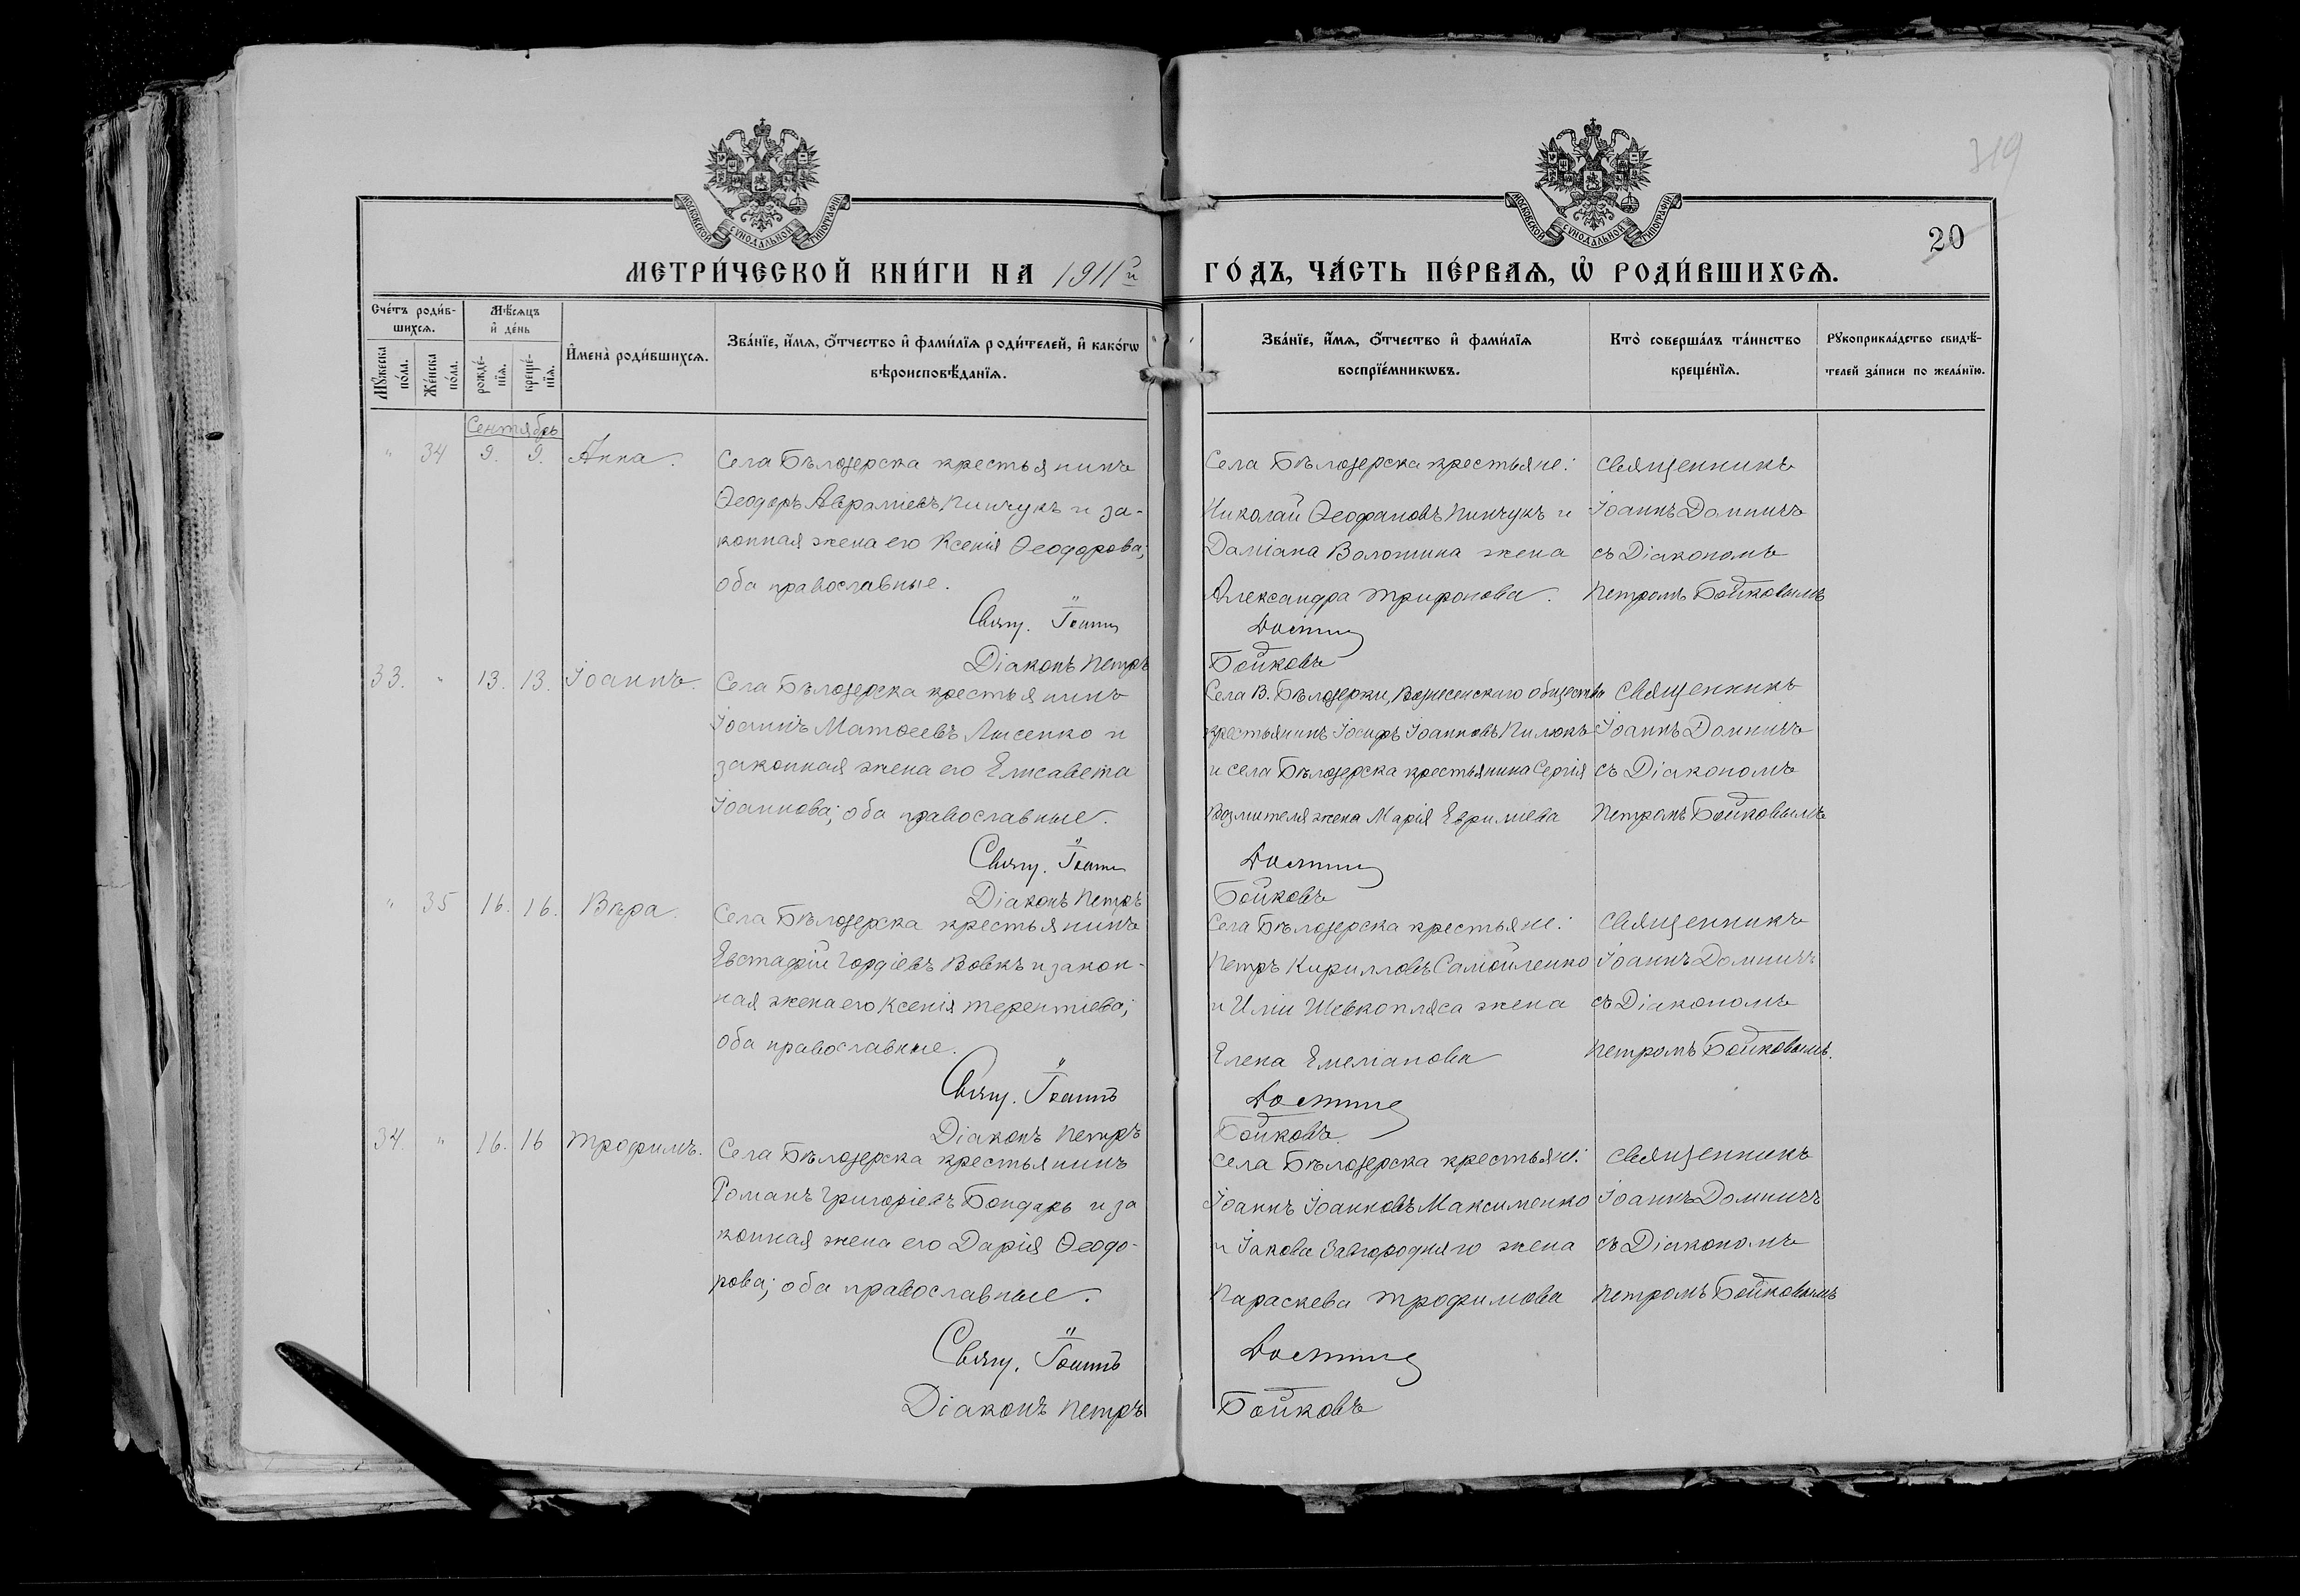 МОСКОВСКОЙ СѴНОДАЛЬНОЙ ТИПОГРАФІИ
МОСКОВСКОЙ СѴНОДАЛЬНОЙ ТИПОГРАФІИ
319
20
МЕТРИ́ЧЕСКОЙ КНИ́ГИ НА 1911й
ГО́ДЪ, ЧА́СТЬ ПЕ́РВАѦ, Ѡ҆ РОДИ́ВШИХСѦ.
Сче́тъ роди́в-
шихсѧ.
Мѣ́сѧцъ
и҆ де́нь
И҆мена̀ роди́вшихсѧ.
Зва́нїе, и҆́мѧ, ѻ҆́тчество и҆ фами́лїѧ роди́телей, и҆ како́гѡ
вѣроисповѣ́данїѧ.
Мꙋ́жеска
по́ла.
Же́нска
по́ла.
рожде́-
нїѧ.
креще́-
нїѧ.
Зва́нїе, и҆́мѧ, ѻ҆́тчество и҆ фами́лїѧ
воспрїе́мникѡвъ.
Кто̀ соверша́лъ та́инство
креще́нїѧ.
Рꙋкоприкла́дство свидѣ́-
телей за́писи по жела́нїю.
Сентябрь
" 34 9. 9. Анна.
Села Бѣлозерска крестьянинъ
Ѳеодоръ Авраміевъ Пинчукъ и за-
конная жена его Ксенія Ѳеодорова;
оба православные.
Свящ. Іоаннъ
Діаконъ Петръ
Села Бѣлозерска крестьяне:
Николай Ѳеофановъ Пинчукъ и
Даміана Волошина жена
Александра Трифонова.
Бойковъ
Священникъ
Іоаннъ
съ Діакономъ
Петромъ Бойковымъ
33. " 13. 13. Іоаннъ.
Села Бѣлозерска крестьянинъ
Іоаннъ Матѳеевъ Лысенко и
законная жена его Елисавета
Іоаннова; оба православные.
Свящ. Іоаннъ
Діаконъ Петръ
Села В. Бѣлозерки, Вознесенскаго общества
крестьянинъ Іосифъ Іоанновъ Пилюкъ
и села Бѣлозерска крестьянина Сергія
жена Марія
Бойковъ
Священникъ
Іоаннъ
съ Діакономъ
Петромъ Бойковымъ
" 35 16. 16. Вѣра.
Села Бѣлозерска крестьянинъ
Евстафій Гордіевъ Вовкъ и закон-
ная жена его Ксенія Терентіева;
оба православные.
Свящ. Іоаннъ
Діаконъ Петръ
Села Бѣлозерска крестьяне:
Петръ Кирилловъ Самойленко
и Иліи Шевкопляса жена
Елена Емеліанова
Бойковъ.
Священникъ
Іоаннъ
съ Діакономъ
Петромъ Бойковымъ.
34. " 16. 16 Трофимъ.
Села Бѣлозерска крестьянинъ
Романъ Григоріевъ Бондарь и за
конная жена его Дарія Ѳеодо-
рова; оба православные.
Свящ. Іоаннъ
Діаконъ Петръ
Села Бѣлозерска крестьяне:
Іоаннъ Іоанновъ Максименко
и Іакова Завгородняго жена
Параскева Трофимова
Бойковъ
Священникъ
Іоаннъ
съ Діакономъ
Петромъ Бойковымъ